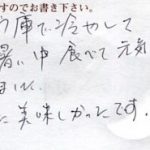 すのでお書き下さい。
庫で冷やして
暑い中 食べて 元気
に美味しかったです。